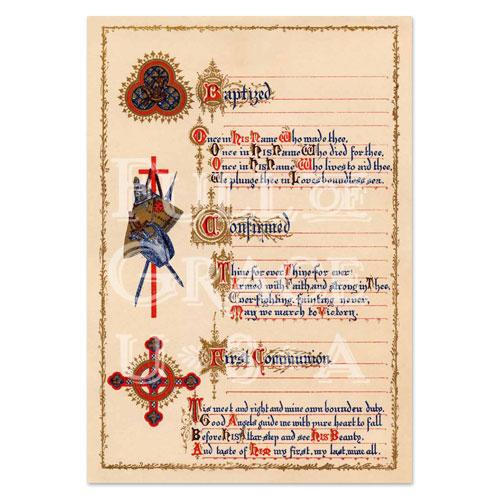 Baptized
Once in His Name Who made thee,
Once in His Name Who died for thee,
Once in His Name Who lives to aid thee,
We plunge thee in Love's boundless sea.
FULL OF
Confirmed
GRACE
Thine for ever! Thine for ever!
Armed with Faith, and strong in Thee,
Ever fighting, fainting never,
May we march to Victory.
USA
First Communion
Tis meet and right and mine own bounden duty.
Good Angels guide me with pure heart to fall
Before His Altar step and see His Beauty.
And taste of Him my first, my last, mine all.